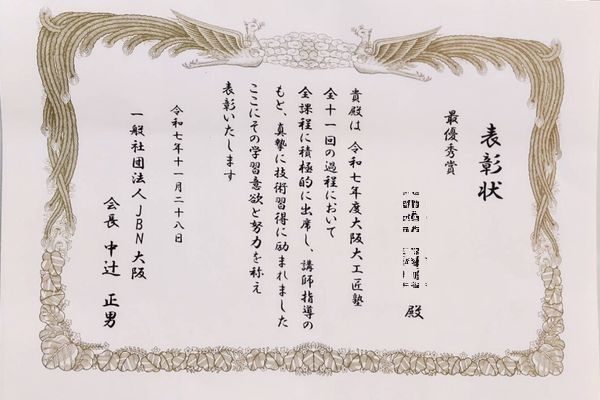 表彰状
最優秀賞
殿
貴殿は 令和七年度大阪大工匠塾
全十一回の過程において
全課程に積極的に出席し、講師指導の
もと、真摯に技術習得に励まれました
ここにその学習意欲と努力を称え
表彰いたします
令和七年十一月二十八日
一般社団法人JBN大阪
会長 中辻 正男